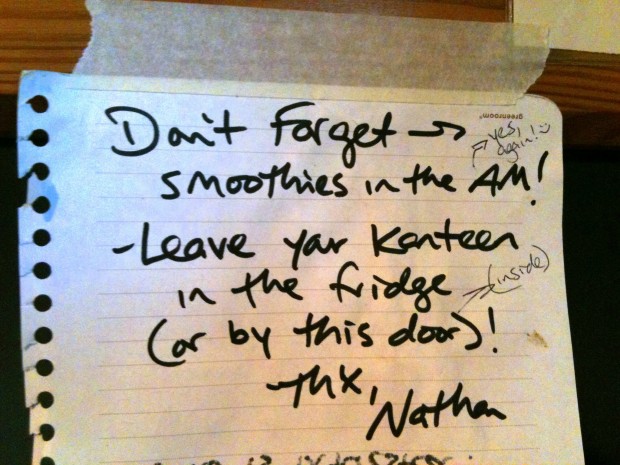 greenroom
Don't Forget →
yes,
again! :)
smoothies in the AM!
-Leave your Kanteen
in the fridge
(inside)
(or by this door)!
-THX,
Nathan